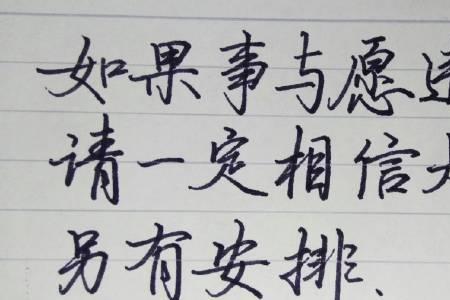 如果事与愿
请一定相信
另有安排、